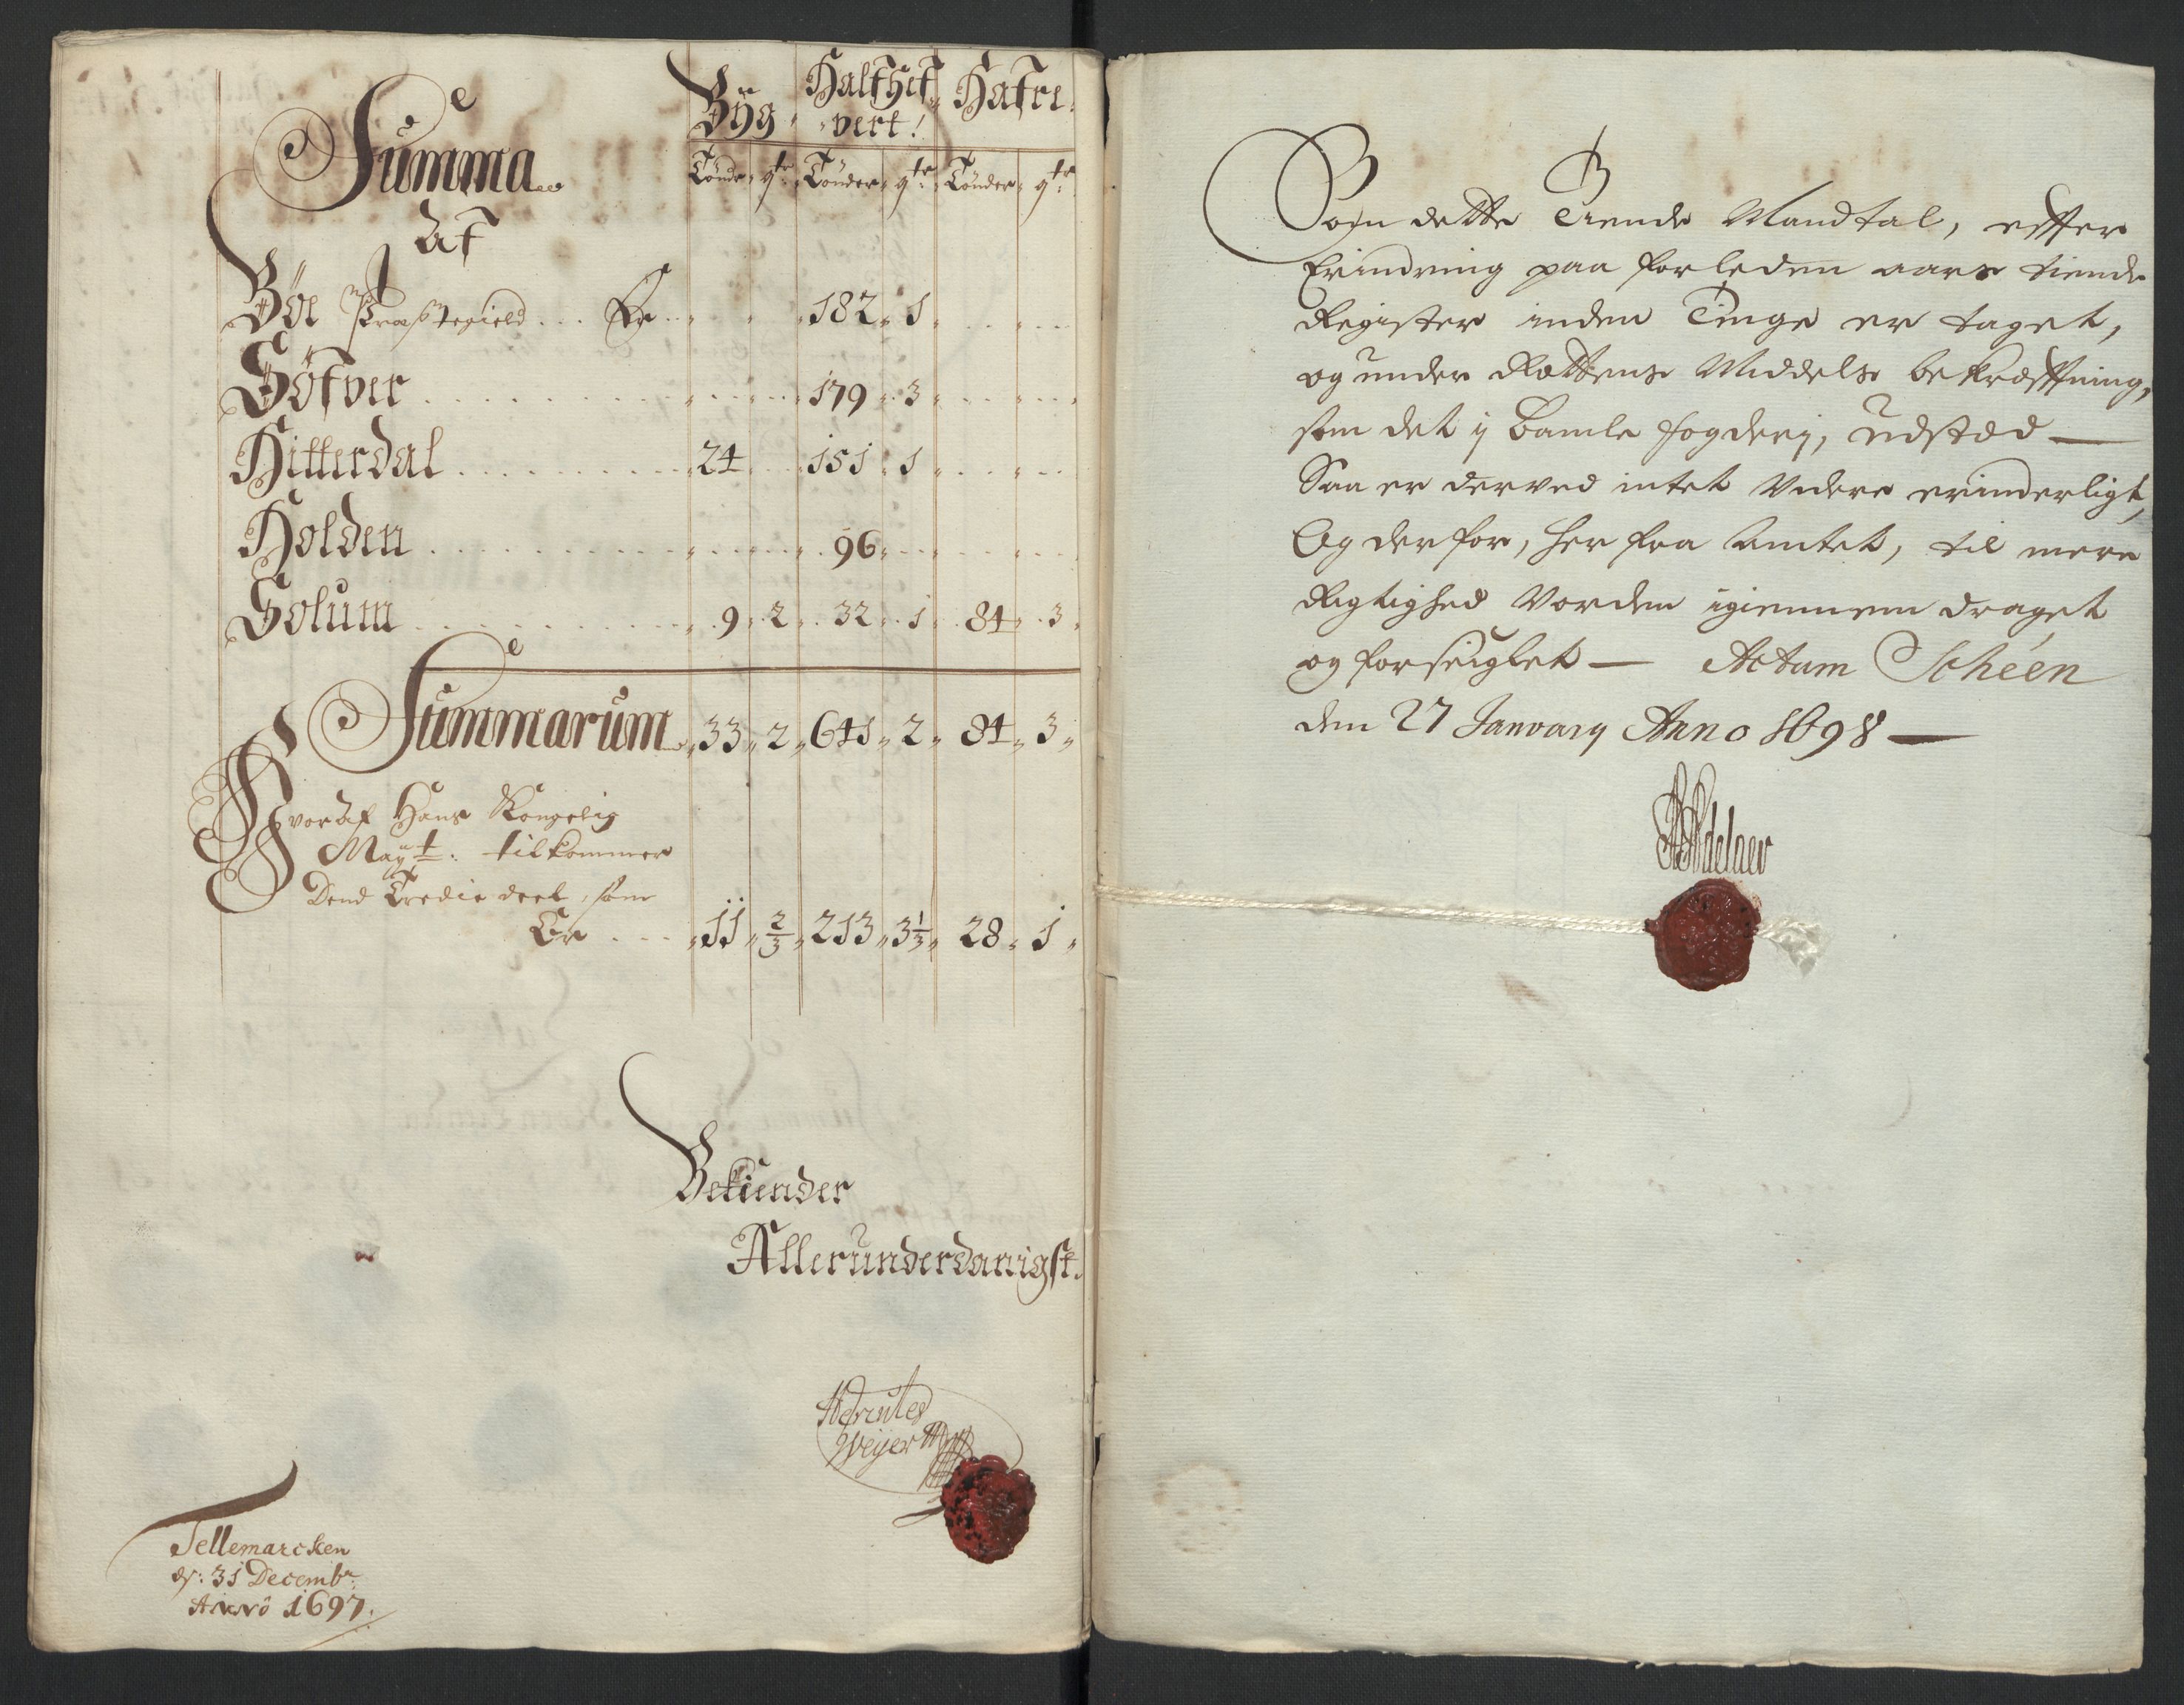 Bÿg. Halfhef vert! Hafre.
Summa
Tønder qtr: Tønder qtr: Tønder qtr:
Af
Bøe Præstegield ... Er 182 1
Søfver 179 3
Hitterdal 24 151 1
Holden 96
Solum 9 2 32 1 84 3
Summarum 33 2 641 2 84 3
Hvoraf Hans Kongelig
Mayt: tilkommer
Dend Tredie deel, som
Er 11 2/3 213 3 1/3 28 1
Bekiender
Allerunderdanigst.
Hercules
Weyer
Tellemarcken
d: 31 Decembr:
Anno 1697.
Som dette Tiende Mandtal, effter
Erindring paa forleden aars tiende
Register inden Tinge er taget,
og under Rættens Middels bekræfftning,
som det ij Bamle fogderij, udstæd —
Saa er derved intet videre erinderligt,
Og derfor, her fra Amtet, til mere
Rigtighed vorden igiennem draget
og forseiglet — Actum Schéen
den 27 January Anno 1698 —
Adelaer